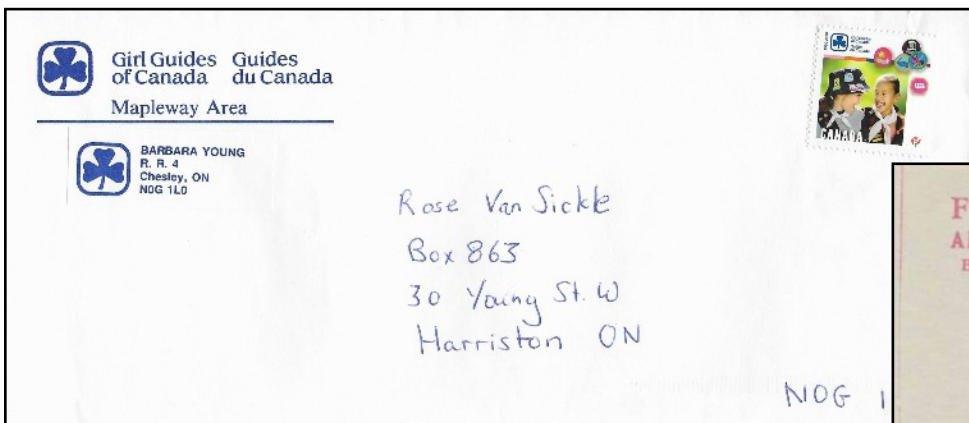 Girl Guides of Canada
Guides du Canada
Mapleway Area
BARBARA YOUNG
R. R. 4
Chesley, ON
N0G 1L0
CANADA
Rose Van Sickle
Box 863
30 Young St. W
Harriston ON
N0G 1
F